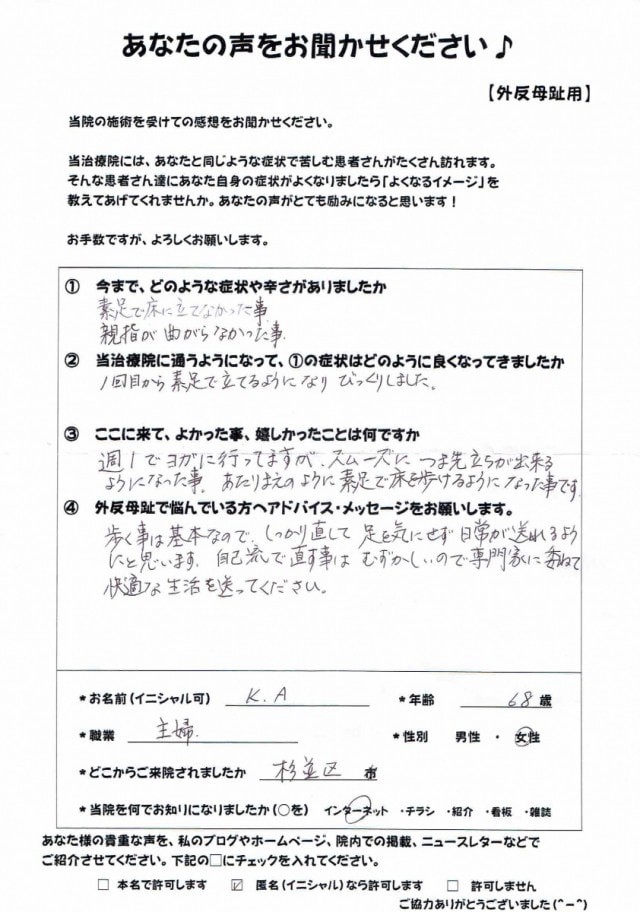 あなたの声をお聞かせください♪
【外反母趾用】
当院の施術を受けての感想をお聞かせください。
当治療院には、あなたと同じような症状で苦しむ患者さんがたくさん訪れます。
そんな患者さん達にあなた自身の症状がよくなりましたら「よくなるイメージ」を
教えてあげてくれませんか。あなたの声がとても励みになると思います！
お手数ですが、よろしくお願いします。
① 今まで、どのような症状や辛さがありましたか
素足で床に立てなかった事
親指が曲がらなかった事.
② 当治療院に通うようになって、①の症状はどのように良くなってきましたか
1回目から素足で立てるようになり びっくりしました。
③ ここに来て、よかった事、嬉しかったことは何ですか
週1でヨガに行ってますが、スムーズに つま先立ちが出来る
ようになった事. あたりまえのように素足で床を歩けるようになった事です
④ 外反母趾で悩んでいる方へアドバイス・メッセージをお願いします。
歩く事は基本なので、しっかり直して 足を気にせず日常が送れるよう
にと思います. 自己流で直す事は むずかしいので専門家に委ねて
快適な生活を送ってください。
*お名前(イニシャル可) K.A *年齢 68歳
*職業 主婦. *性別 男性 ・ 女性
*どこからご来院されましたか 杉並区 市
*当院を何でお知りになりましたか(○を) インターネット ・チラシ ・紹介 ・看板 ・雑誌
あなた様の貴重な声を、私のブログやホームページ、院内での掲載、ニュースレターなどで
ご紹介させてください。下記の□にチェックを入れてください。
□ 本名で許可します ☑ 匿名(イニシャル)なら許可します □ 許可しません
ご協力ありがとうございました(^-^)